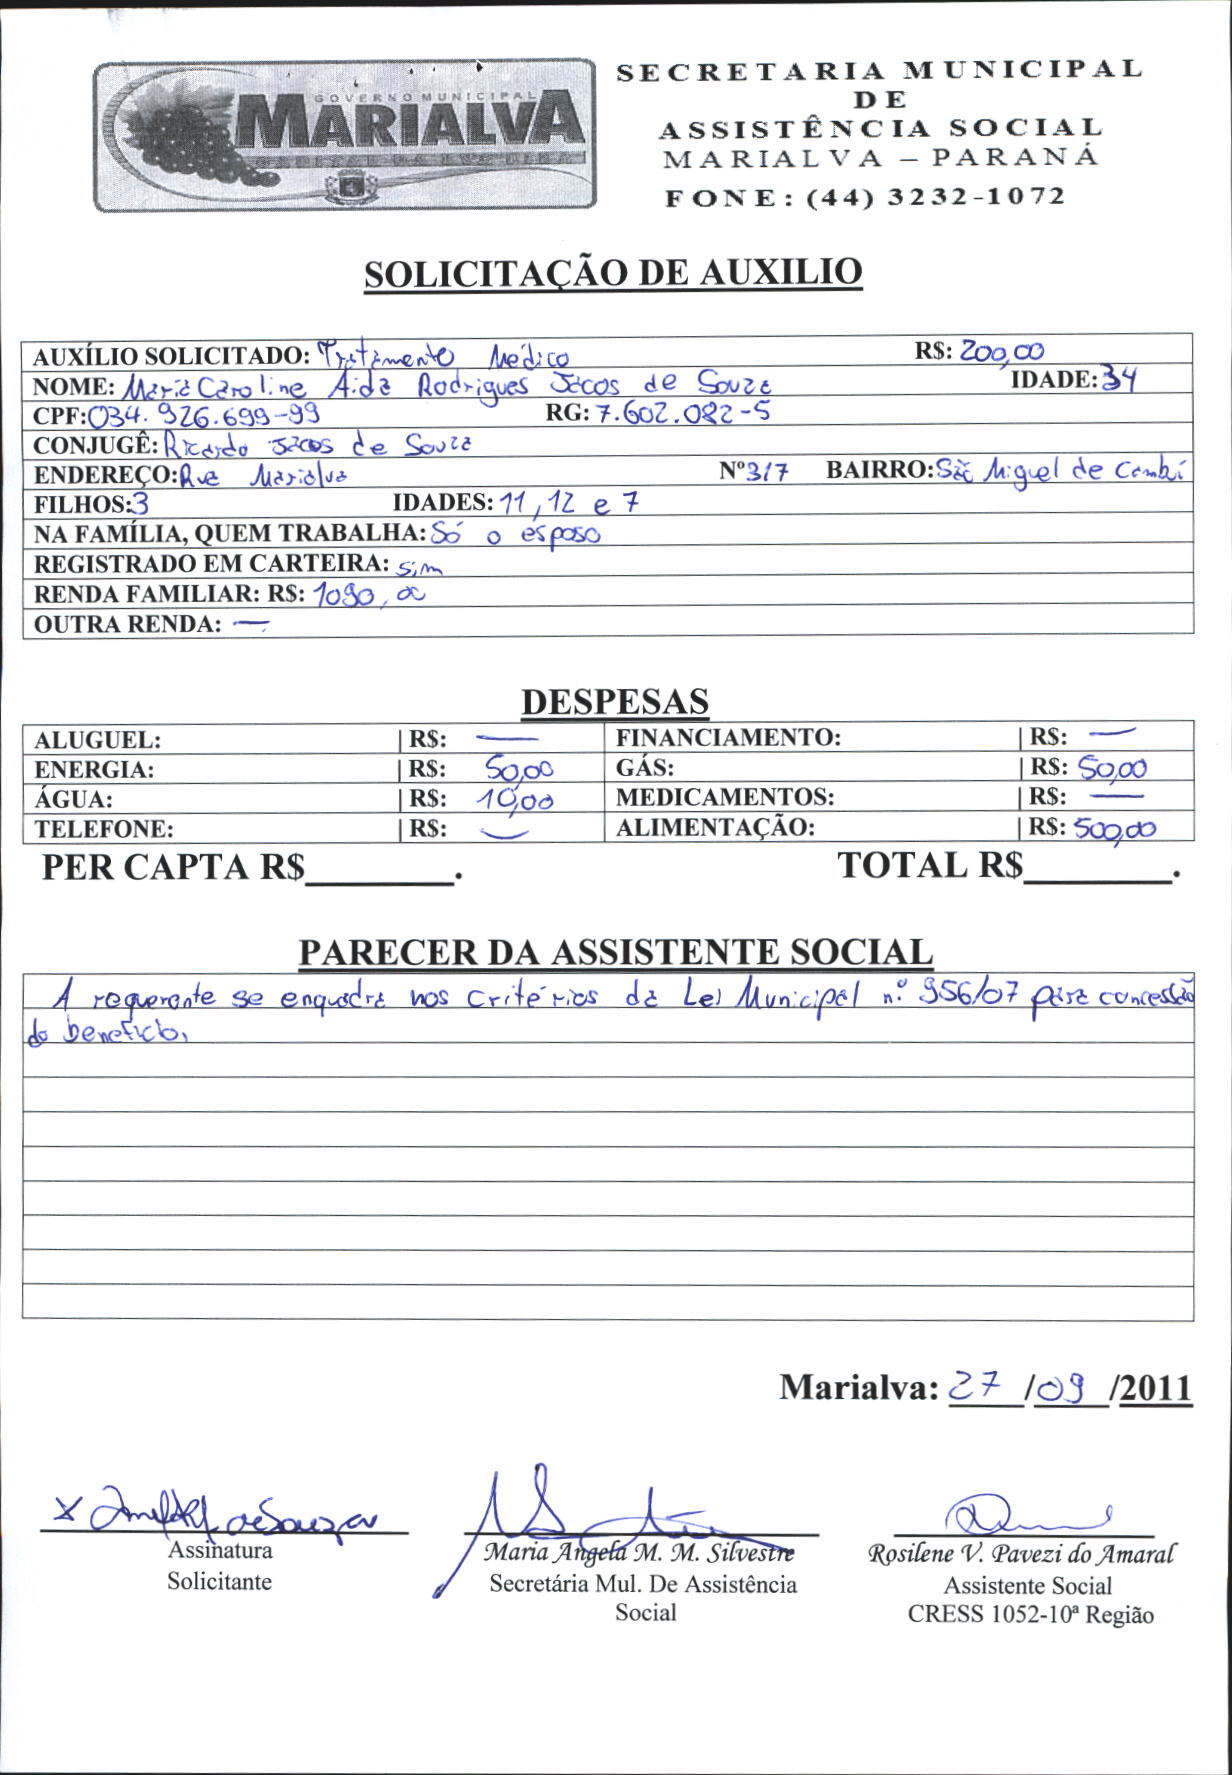 GOVERNO MUNICIPAL
MARIALVA
SECRETARIA MUNICIPAL
DE
ASSISTÊNCIA SOCIAL
MARIALVA – PARANÁ
FONE: (44) 3232-1072
SOLICITAÇÃO DE AUXILIO
AUXÍLIO SOLICITADO: Tratamento Médico R$: 200,00
NOME: Maria Caroline Aida Rodrigues Jacos de Souza IDADE: 34
CPF: 034.926.699-99 RG: 7.602.082-5
CONJUGÊ: Ricardo Jacos de Souza
ENDEREÇO: Rua Marialva Nº 317 BAIRRO: São Miguel de Cambi
FILHOS: 3 IDADES: 11, 12 e 7
NA FAMÍLIA, QUEM TRABALHA: Só o esposo
REGISTRADO EM CARTEIRA: sim
RENDA FAMILIAR: R$: 1090,00
OUTRA RENDA: —
DESPESAS
ALUGUEL: | R$: — FINANCIAMENTO: | R$: —
ENERGIA: | R$: 50,00 GÁS: | R$: 50,00
ÁGUA: | R$: 10,00 MEDICAMENTOS: | R$: —
TELEFONE: | R$: — ALIMENTAÇÃO: | R$: 500,00
PER CAPTA R$________. TOTAL R$________.
PARECER DA ASSISTENTE SOCIAL
A requerente se enquadra nos critérios da Lei Municipal n.º 956/07 para concessão
do benefício.
Marialva: 27 /09 /2011
x de Souza
Assinatura
Solicitante
Maria Angela M. M. Silvestre
Secretária Mul. De Assistência
Social
Rosilene V. Pavezi do Amaral
Assistente Social
CRESS 1052-10ª Região